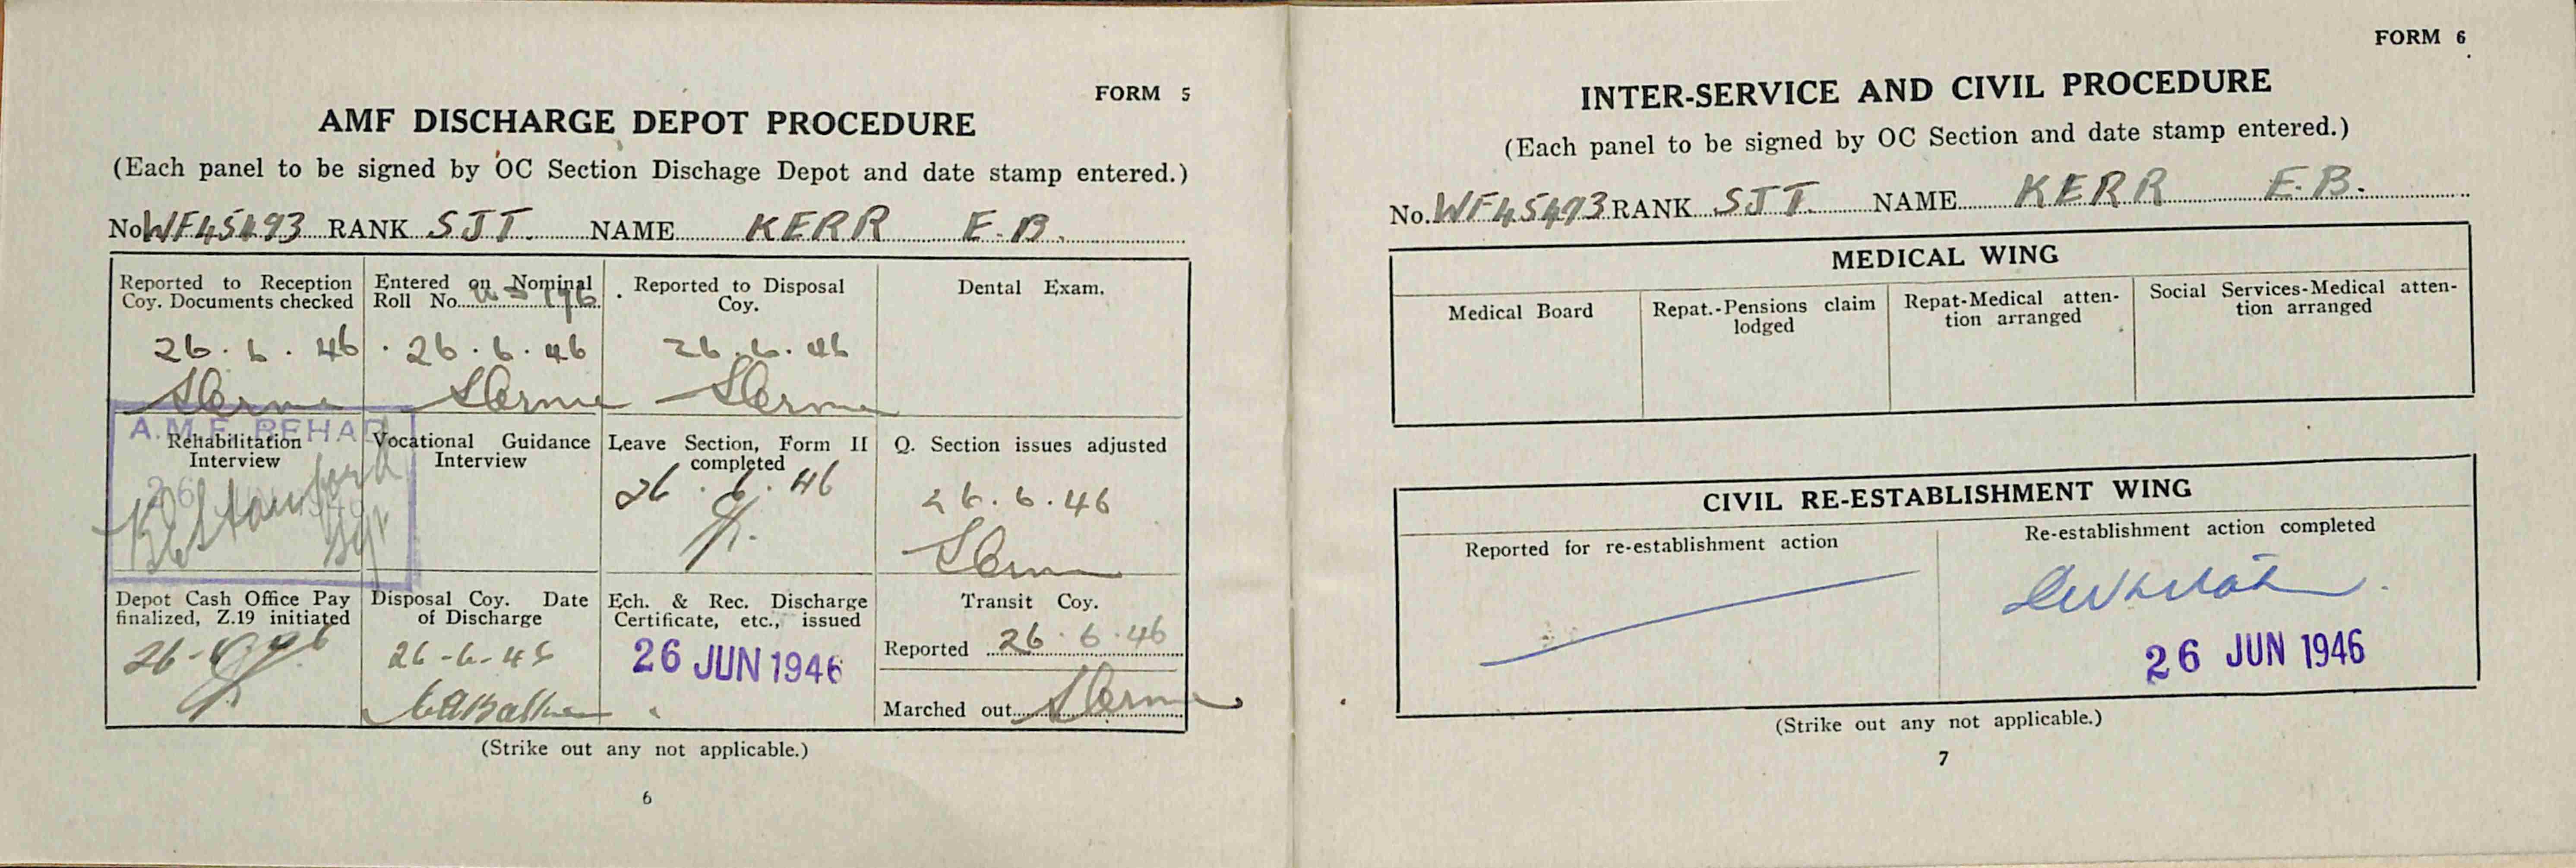 FORM 5
AMF DISCHARGE DEPOT PROCEDURE
(Each panel to be signed by OC Section Dischage Depot and date stamp entered.)
No WF45493 RANK SJT. NAME KERR E.B.
Reported to Reception
Coy. Documents checked
26.6.46
Entered on Nominal
Roll No.
26.6.46
Reported to Disposal
Coy.
26.6.46
Dental Exam.
A.M.F. REHAB
Rehabilitation
Interview
26
Sgt
Vocational Guidance
Interview
Leave Section, Form II
completed
26.6.46
Q. Section issues adjusted
26.6.46
Depot Cash Office Pay
finalized, Z.19 initiated
Disposal Coy. Date
of Discharge
Ech. & Rec. Discharge
Certificate, etc., issued
26 JUN 1946
Transit Coy.
Reported 26.6.46
Marched out
(Strike out any not applicable.)
6
FORM 6
INTER-SERVICE AND CIVIL PROCEDURE
(Each panel to be signed by OC Section and date stamp entered.)
No. WF45493 RANK SJT. NAME KERR E.B.
MEDICAL WING
Medical Board
Repat.-Pensions claim
lodged
Repat-Medical atten-
tion arranged
Social Services-Medical atten-
tion arranged
CIVIL RE-ESTABLISHMENT WING
Reported for re-establishment action
Re-establishment action completed
26 JUN 1946
(Strike out any not applicable.)
7